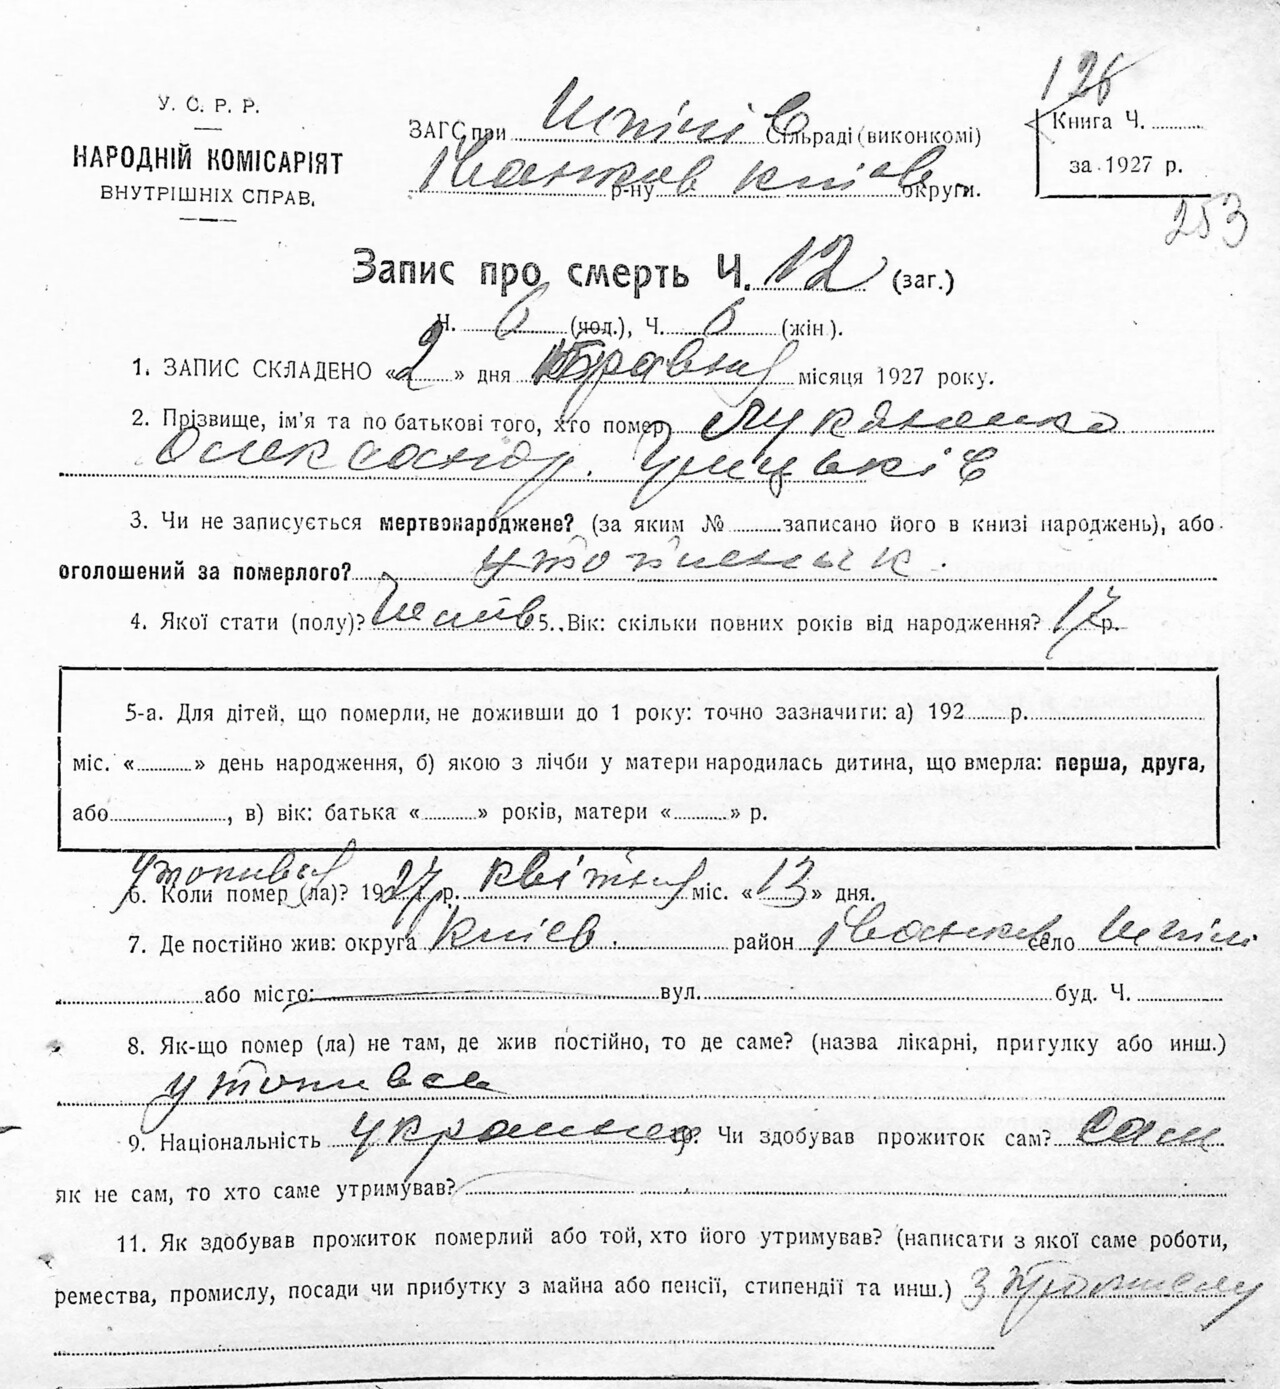 У. С. Р. Р.
НАРОДНІЙ КОМІСАРІЯТ
ВНУТРІШНІХ СПРАВ.
ЗАГС при Шпилів Сільраді (виконкомі)
Іванков р-ну Київ округи.
126
Книга Ч.
за 1927 р.
253
Запис про смерть Ч. 12 (заг.)
Ч. 6 (чол.), Ч. 6 (жін).
1. ЗАПИС СКЛАДЕНО «2» дня травня місяця 1927 року.
2. Прізвище, ім'я та по батькові того, хто помер Лукяненко
Олександр. Грицьків
3. Чи не записується мертвонароджене? (за яким № записано його в книзі народжень), або
оголошений за померлого? утопленык.
4. Якої стати (полу)? 5. Вік: скільки повних років від народження? 17 р.
5-а. Для дітей, що померли, не доживши до 1 року: точно зазначити: а) 192 р.
міс. « » день народження, б) якою з лічби у матери народилась дитина, що вмерла: перша, друга,
або , в) вік: батька « » років, матери « » р.
утопився
6. Коли помер (ла)? 1927 р. квітня міс. «13» дня.
7. Де постійно жив: округа Київ. район Іванков село Шпилі
або місто: вул. буд. Ч.
8. Як-що помер (ла) не там, де жив постійно, то де саме? (назва лікарні, пригулку або инш.)
утопився
9. Національність украинец Чи здобував прожиток сам? сам
як не сам, то хто саме утримував?
11. Як здобував прожиток померлий або той, хто його утримував? (написати з якої саме роботи,
ремества, промислу, посади чи прибутку з майна або пенсії, стипендії та инш.) з